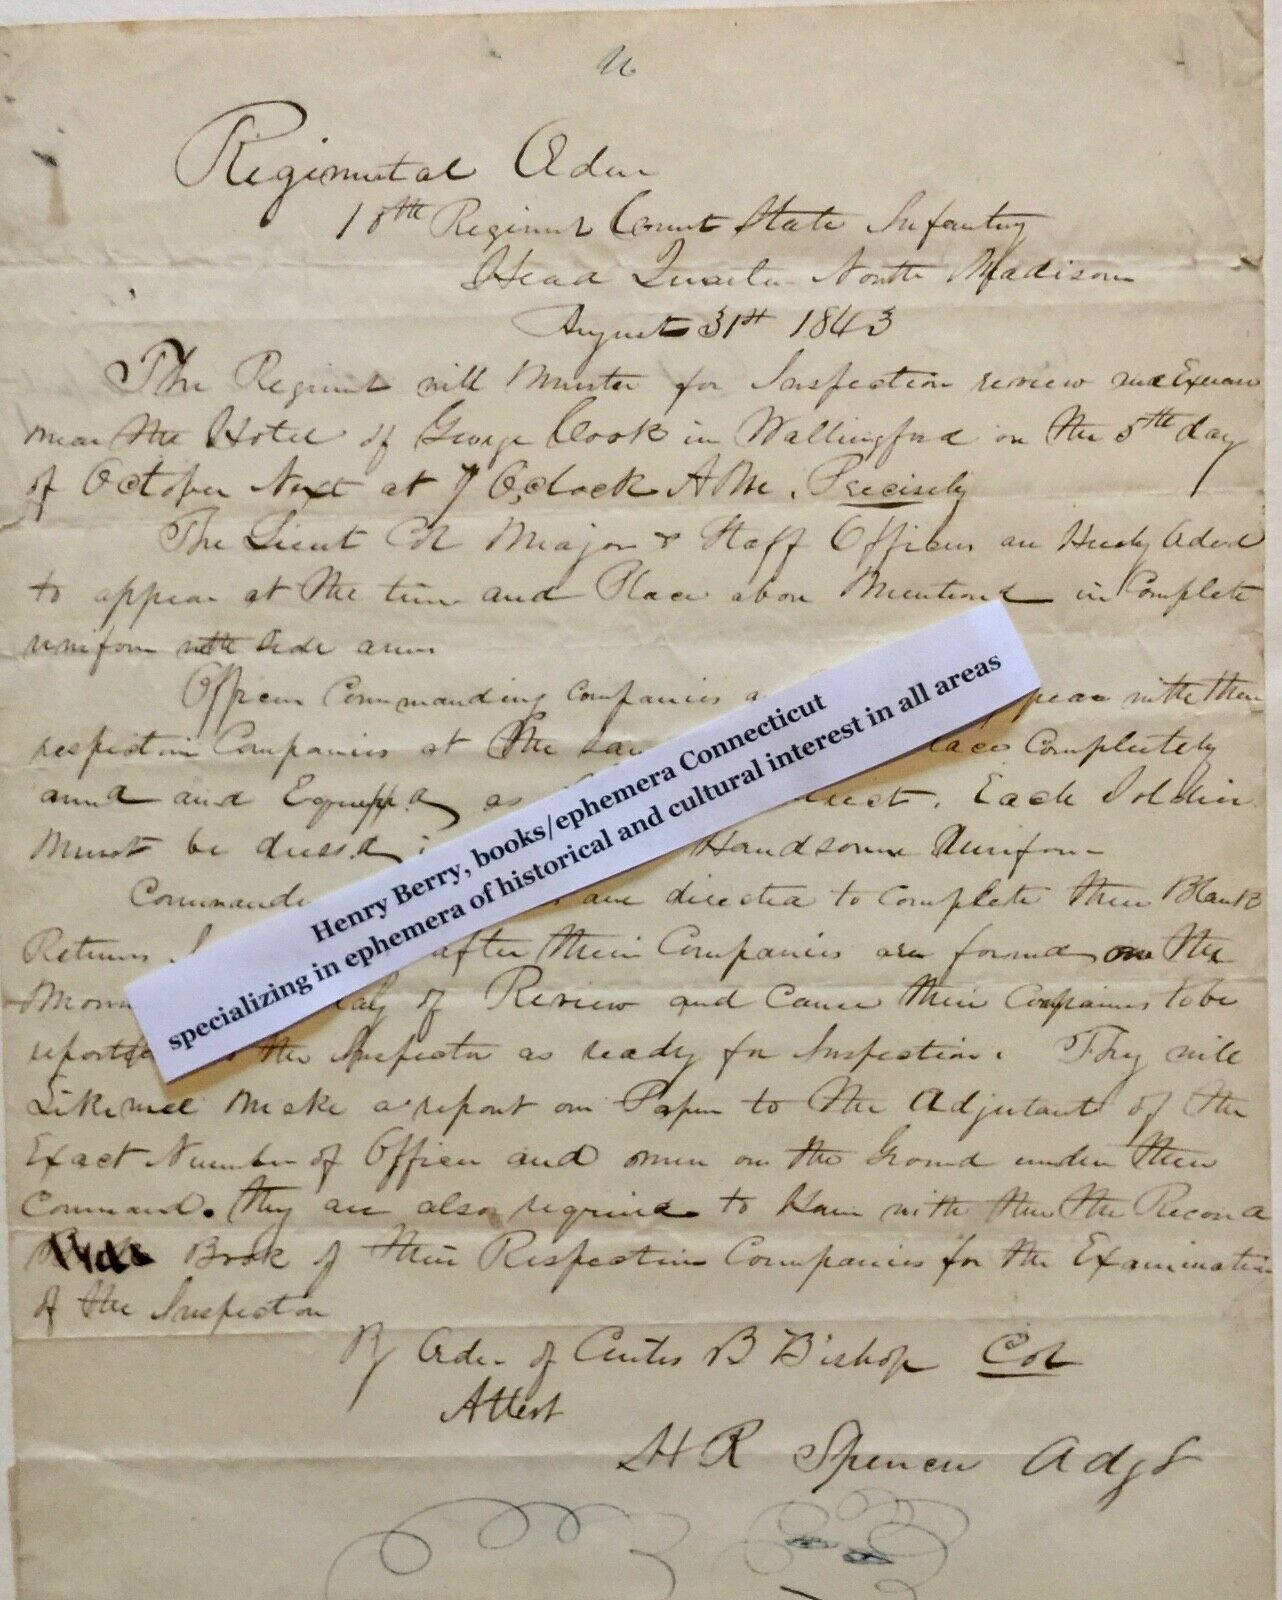 Regimental Order
10th Regiment Connt State Infantry
Head Quarter North Madison
August 31st 1843
The Regiment will Muster for Inspection review and Exercise
near the Hotel of George Cook in Wallingford on the 5th day
of October Next at 7 O,clock A Me. Precisely
The Lieut Col Major & Staff Officers are Hereby Ordered
to appear at the time and Place above Mentioned in Complete
uniform with side arms
Officers Commanding Companies pear with their
respective Companies at the sam lace Completely
armd and Equippd, as irect. Each Soldier
Must be dressd, i Handsome Uniform
Commande are directed to complete their Blank
Returns after their Companies are formed on the
Morn day of Review and cause their Companies to be
reported the Inspector as ready for Inspection. They will
Likewise make a report on Paper to the Adjutant of the
Exact Number of Officers and men on the Ground under their
Command. they are also required to Have with them the Record
Book of their Respective Companies for the Examination
of the Inspector
By Order of Curtis B Bishop Col
Attest
H R Spencer Adjt
Henry Berry, books/ephemera Connecticut
specializing in ephemera of historical and cultural interest in all areas